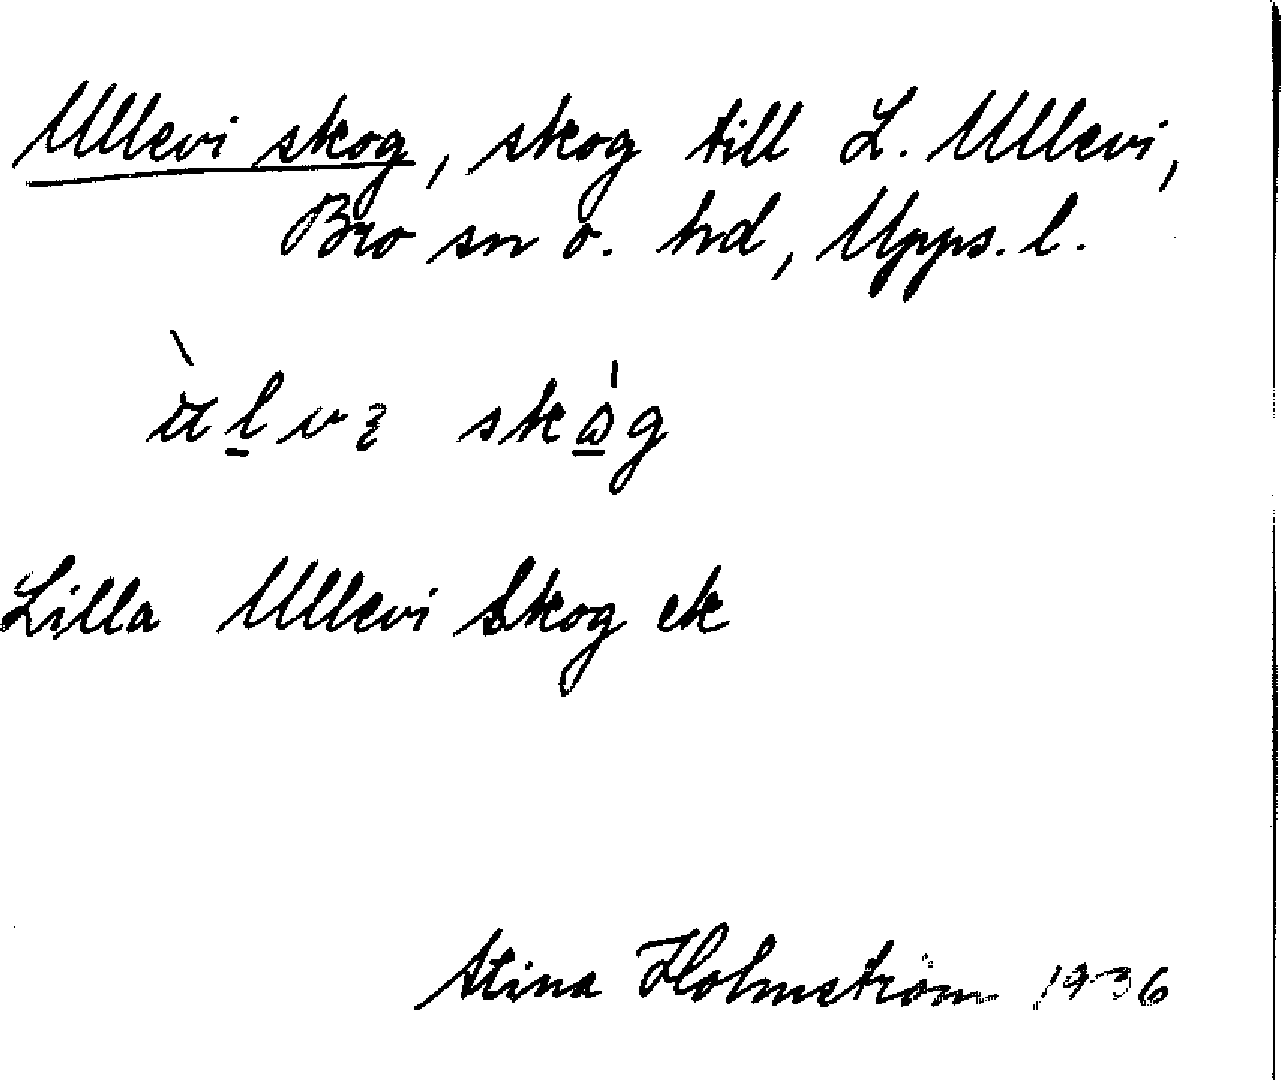 Ullevi skog, skog till L. Ullevi,
Bro sn o. hd, Upps. l.
Lilla Ullevi Skog ek
Stina Holmström 1936